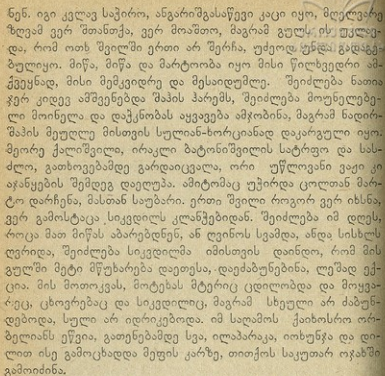 ნენ. იგი კვლავ საჭირო, ანგარიშგასაწევი კაცი იყო, მღელვარე
ზღვამ ვერ შთანთქა, ვერ მოაშთო, მაგრამ გულს ის უკლავ-
და, რომ ოთხ შვილში ერთი არ შერჩა, უძეოდ უნდა გადაგე-
ბულიყო. მიწა, მიწა და მარტოობა იყო მისი წილხვედრი ამ-
ქვეყნად, მისი მემკვიდრე და მესაიდუმლე. შეიძლება ნათია
ჯერ კიდევ ამშვენებდა შაჰის ჰარემს, შეიძლება მოუნელებე-
ლი მოინელა და დაჭკნობას აყვავება ამჯობინა, მაგრამ ნადირ-
შაჰის მეუღლე მისთვის სულიან-ხორციანად დაკარგული იყო.
მეორე ქალიშვილი, ირაკლი ბატონიშვილის სატრფო და სას-
ძლო, გათხოვებამდე გარდაიცვალა, ორი უწლოვანი ვაჟი კი
აჯანყების შემდეგ დაეღუპა. ამიტომაც უჭირდა ცოლთან მარ-
ტო დარჩენა, მასთან საუბარი. ერთი შვილი როგორ ვერ იხსნა,
ვერ გამოსტაცა სიკვდილს კლანჭებიდან. შეიძლება იმ დღეს,
როცა მათ მიწას აბარებდნენ, ან ღვინოს სვამდა, ანდა სისხლს
ღვრიდა, შეიძლება სიკვდილმა იმისთვის დაინდო, რომ მის
გულში მეტი მწუხარება დაეთესა, დაეძაბუნებინა, ლეშად ექ-
ცია. მის მოთოკვას, მოტეხას მტერიც ცდილობდა და მოყვა-
რეც, ცხოვრებაც და სიკვდილიც, მაგრამ სხეული არ ძაბუნ-
დებოდა, სული არ იდრიკებოდა. იმ საღამოს ქაიხოსრო ორ-
ბელიანს ეწვია, გათენებამდე სვა, ილაპარაკა, იოხუნჯა და დი-
ლით ისე გამოცხადდა მეფის კარზე, თითქოს საკუთარ ოჯახში
გამოიძინა.